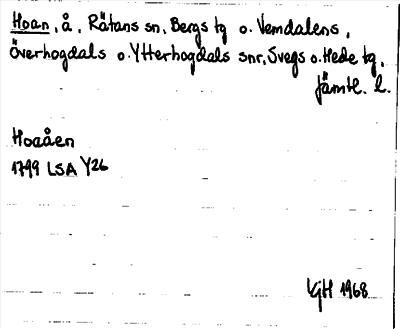 Hoan, å, Rätans sn, Bergs tg o. Vemdalens,
Överhogdals o. Ytterhogdals snr, Svegs o. Hede tg,
Jämtl. l.
Hoaåen
1799 LSA Y26
KjH 1968